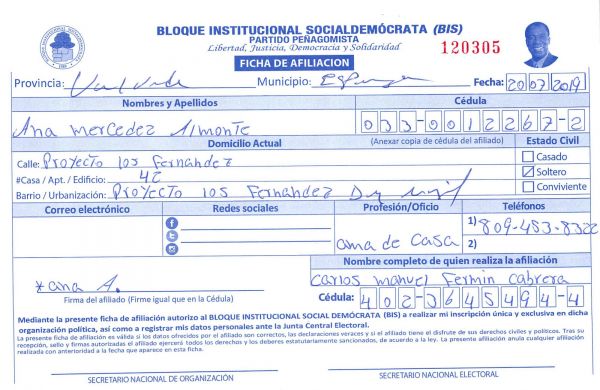 BLOQUE INSTITUCIONAL SOCIALDEMÓCRATA (BIS)
PARTIDO PEÑAGOMISTA
Libertad, Justicia, Democracia y Solidaridad
120305
FICHA DE AFILIACION
Provincia: Valverde Municipio: Esperanza Fecha: 20 07 2019
Nombres y Apellidos Cédula
Ana mercedez Almonte 033-0012267-2
Domicilio Actual (Anexar copia de cédula del afiliado) Estado Civil
Calle: Proyecto los Fernandez Casado
#Casa / Apt./ Edificio: 42 Soltero
Barrio / Urbanización: Proyecto los Fernandez Conviviente
Correo electrónico Redes sociales Profesión/Oficio Teléfonos
1) 809-453-8322
ama de casa 2)
Nombre completo de quien realiza la afiliación
xana A. Carlos manuel Fermin Cabrera
Firma del afiliado (Firme igual que en la Cédula) Cédula: 402-3645494-4
Mediante la presente ficha de afiliación autorizo al BLOQUE INSTITUCIONAL SOCIAL DEMÓCRATA (BIS) a realizar mi inscripción única y exclusiva en dicha
organización política, así como a registrar mis datos personales ante la Junta Central Electoral.
La presente ficha de afiliación es válida si los datos ofrecidos por el afiliado son correctos, las declaraciones veraces y si el afiliado tiene el disfrute de sus derechos civiles y políticos. Tras su
recepción, sello y firmas autorizadas el afiliado ejercerá todos los derechos y los deberes estatutariamente sancionados, de acuerdo a la ley. La presente afiliación anula cualquier afiliación
realizada con anterioridad a la fecha que aparece en esta ficha.
SECRETARIO NACIONAL DE ORGANIZACIÓN SECRETARIO NACIONAL ELECTORAL